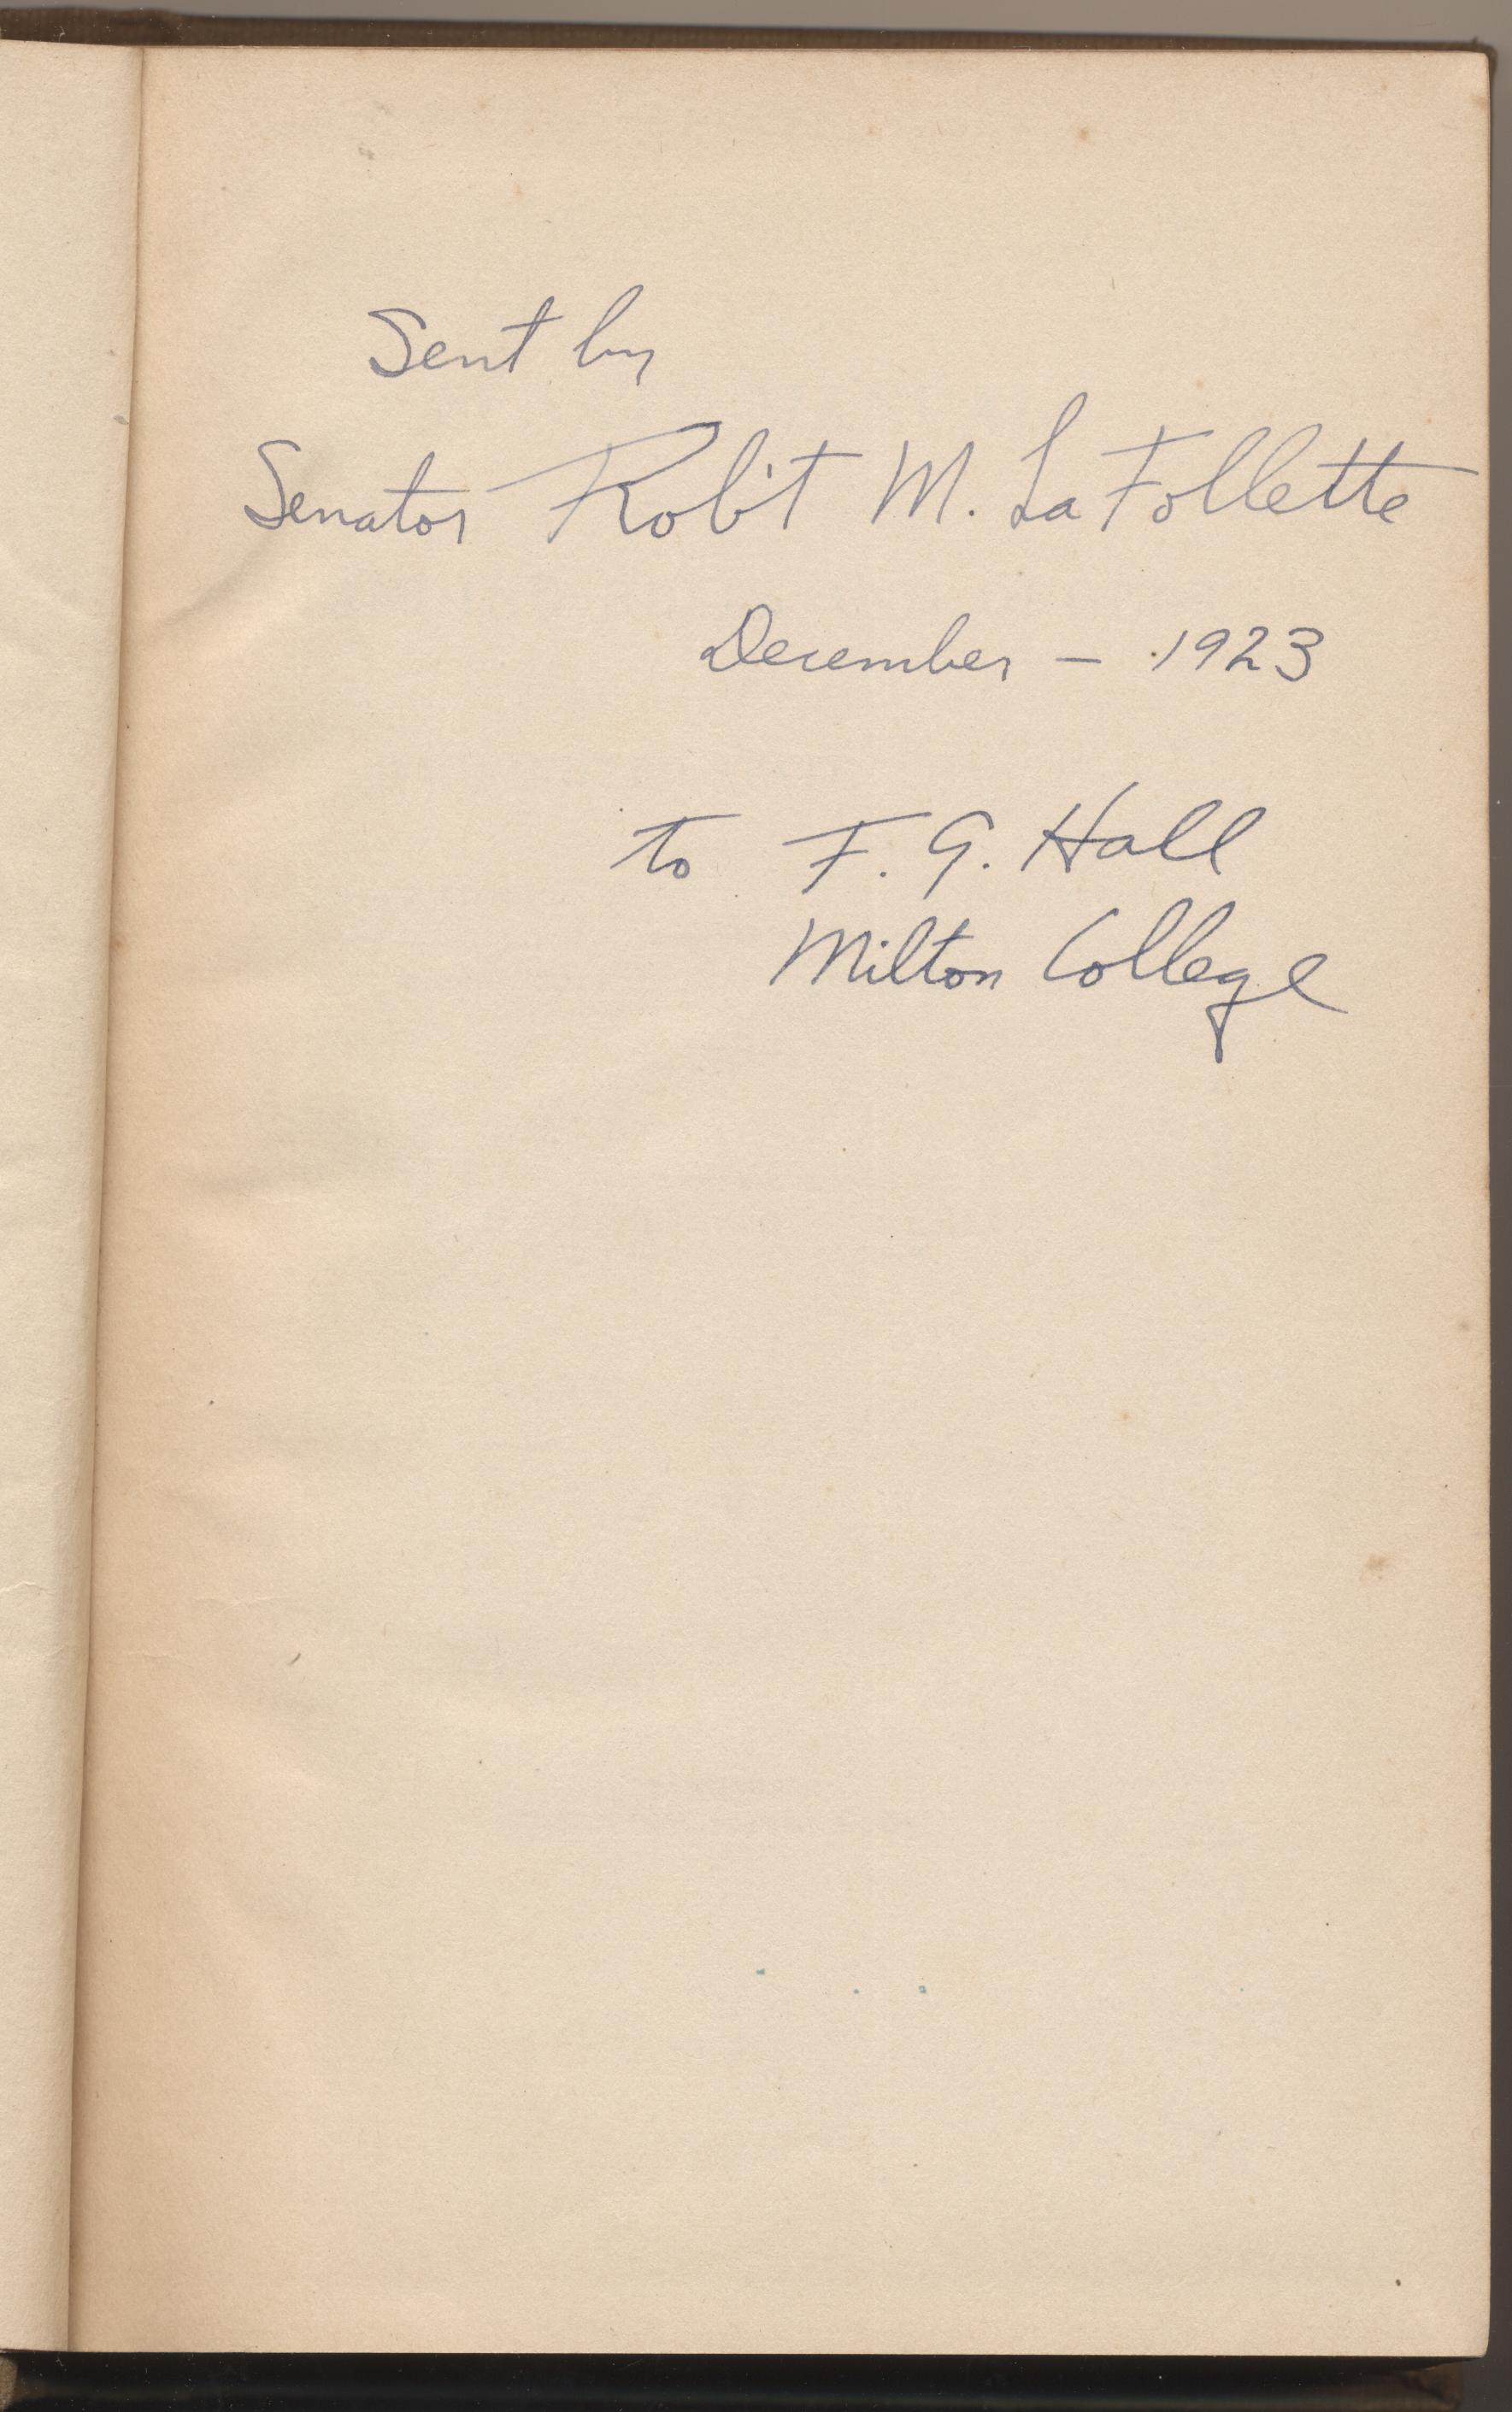 Sent by
Senator Rob't M. La Follette
December – 1923
to F. G. Hall
Milton College